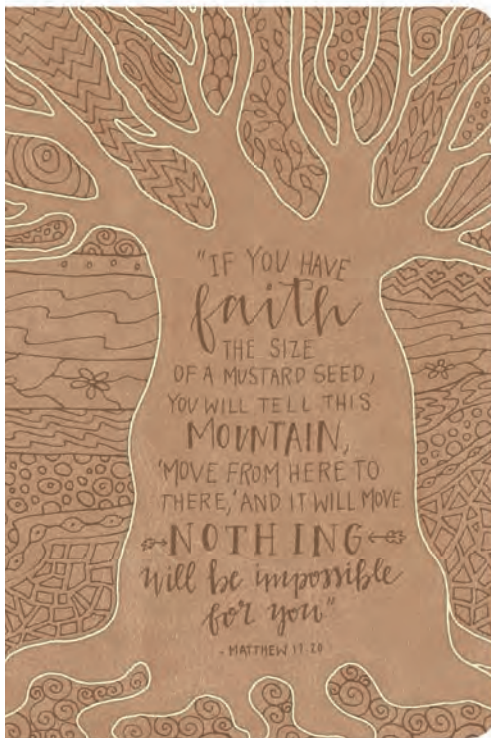 "IF YOU HAVE
faith
THE SIZE
OF A MUSTARD SEED,
YOU WILL TELL THIS
MOUNTAIN,
'MOVE FROM HERE TO
THERE,' AND IT WILL MOVE
NOTHING
will be impossible
for you"
- MATTHEW 17:20